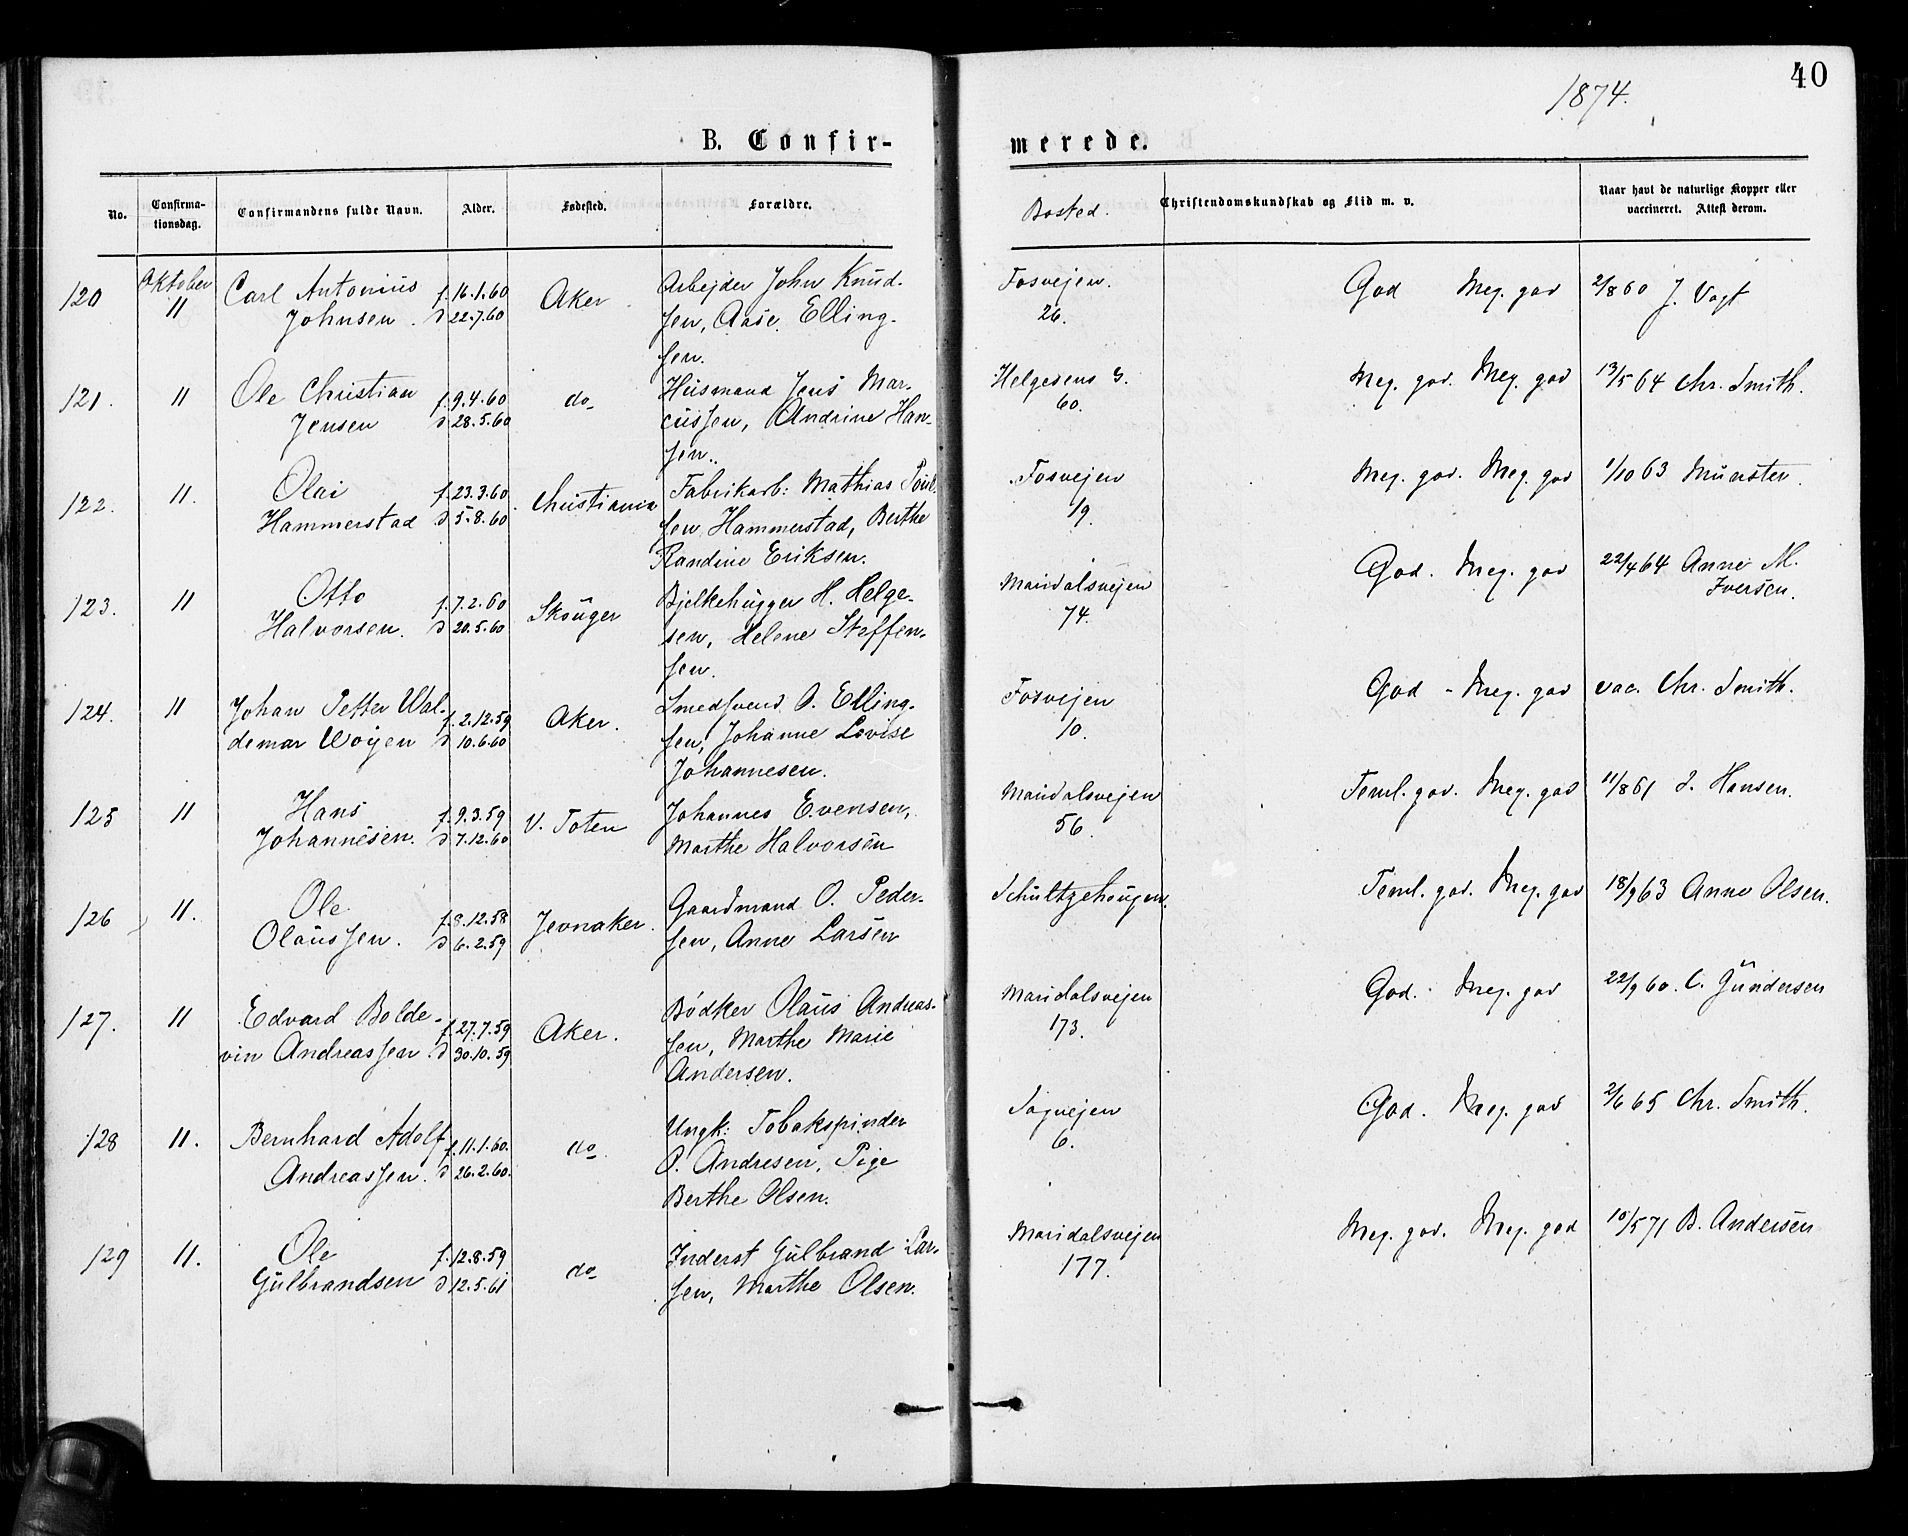 40
1874.
B. Confir-
merede.
No.
Confirma-
tionsdag.
Confirmandens fulde Navn.
Alder.
Fødested.
Forældre.
Bosted.
Christendomskundskab og Flid m. v.
Naar havt de naturlige Kopper eller
vaccineret. Attest derom.
120 Oktober 11 Carl Antonius f. 16.1.60 Aker Arbejder John Knud- Fosvejen. God Meg. god 2/8 60 J. Vogt
Johnsen. d 22.7.60 sen, Aase Elling- 26.
sen.
121. 11 Ole Christian f. 9.4.60 do Husmand Jens Mar- Helgesens G. Meg. god. Meg. god 13/5 64 Chr. Smith.
Jensen d 28.5.60 cussen, Andrine Han- 60.
sen.
122. 11. Olai f. 23.3.60 Christiania Fabrikarb: Mathias Poul- Fosvejen Meg. god. Meg. god 1/10 63 Münster.
Hammerstad d 5.8.60 sen Hammerstad, Berthe 19.
Randine Eriksen.
123. 11 Otto f. 7.2.60 Skouger Bjelkehugger H. Helge- Maridalsvejen God. Meg. god 22/4 64 Anne M.
Halvorsen. d 20.5.60 sen, Helene Steffen- 74. Iversen.
sen.
124. 11 Johan Petter Wal- f. 2.12.59 Aker. Smedsvend O. Elling- Fosvejen God - Meg. god vac. Chr. Smith.
demar Woyen d 10.6.60 sen, Johanne Lovise 10.
Johannesen.
125 11 Hans f. 9.3.59 V. Toten Johannes Evensen, Maridalsvejen Teml. god. Meg. god 11/8 61 J. Hansen.
Johannesen. d 7.12.60 Marthe Halvorsen 56.
126 11. Ole f. 8.12.58 Jevnaker. Gaardmand O. Peder- Schultzehougen. Teml. god. Meg. god 18/9 63 Anne Olsen.
Olaussen. d 6.2.59 sen, Anne Larsen
127. 11 Edvard Bolde- f. 27.7.59 Aker. Bødker Olaus Andreas- Maridalsvejen God. Meg. god 22/9 60. C. Gundersen
vin Andreassen d 30.10.59 sen, Marthe Marie 173.
Andersen.
128 11. Bernhard Adolf f. 11.1.60. do Ungk: Tobakspinder Sagvejen God. Meg. god 2/6 65 Chr. Smith.
Andreassen. d 26.2.60. O. Andresen, Pige 6.
Berthe Olsen.
129 11. Ole f. 12.8.59 do Inderst Gulbrand Lar- Maridalsvejen Meg. god. Meg. god 10/5 71 B. Andersen
Gulbrandsen d 12.5.61 sen, Marthe Olsen. 177.